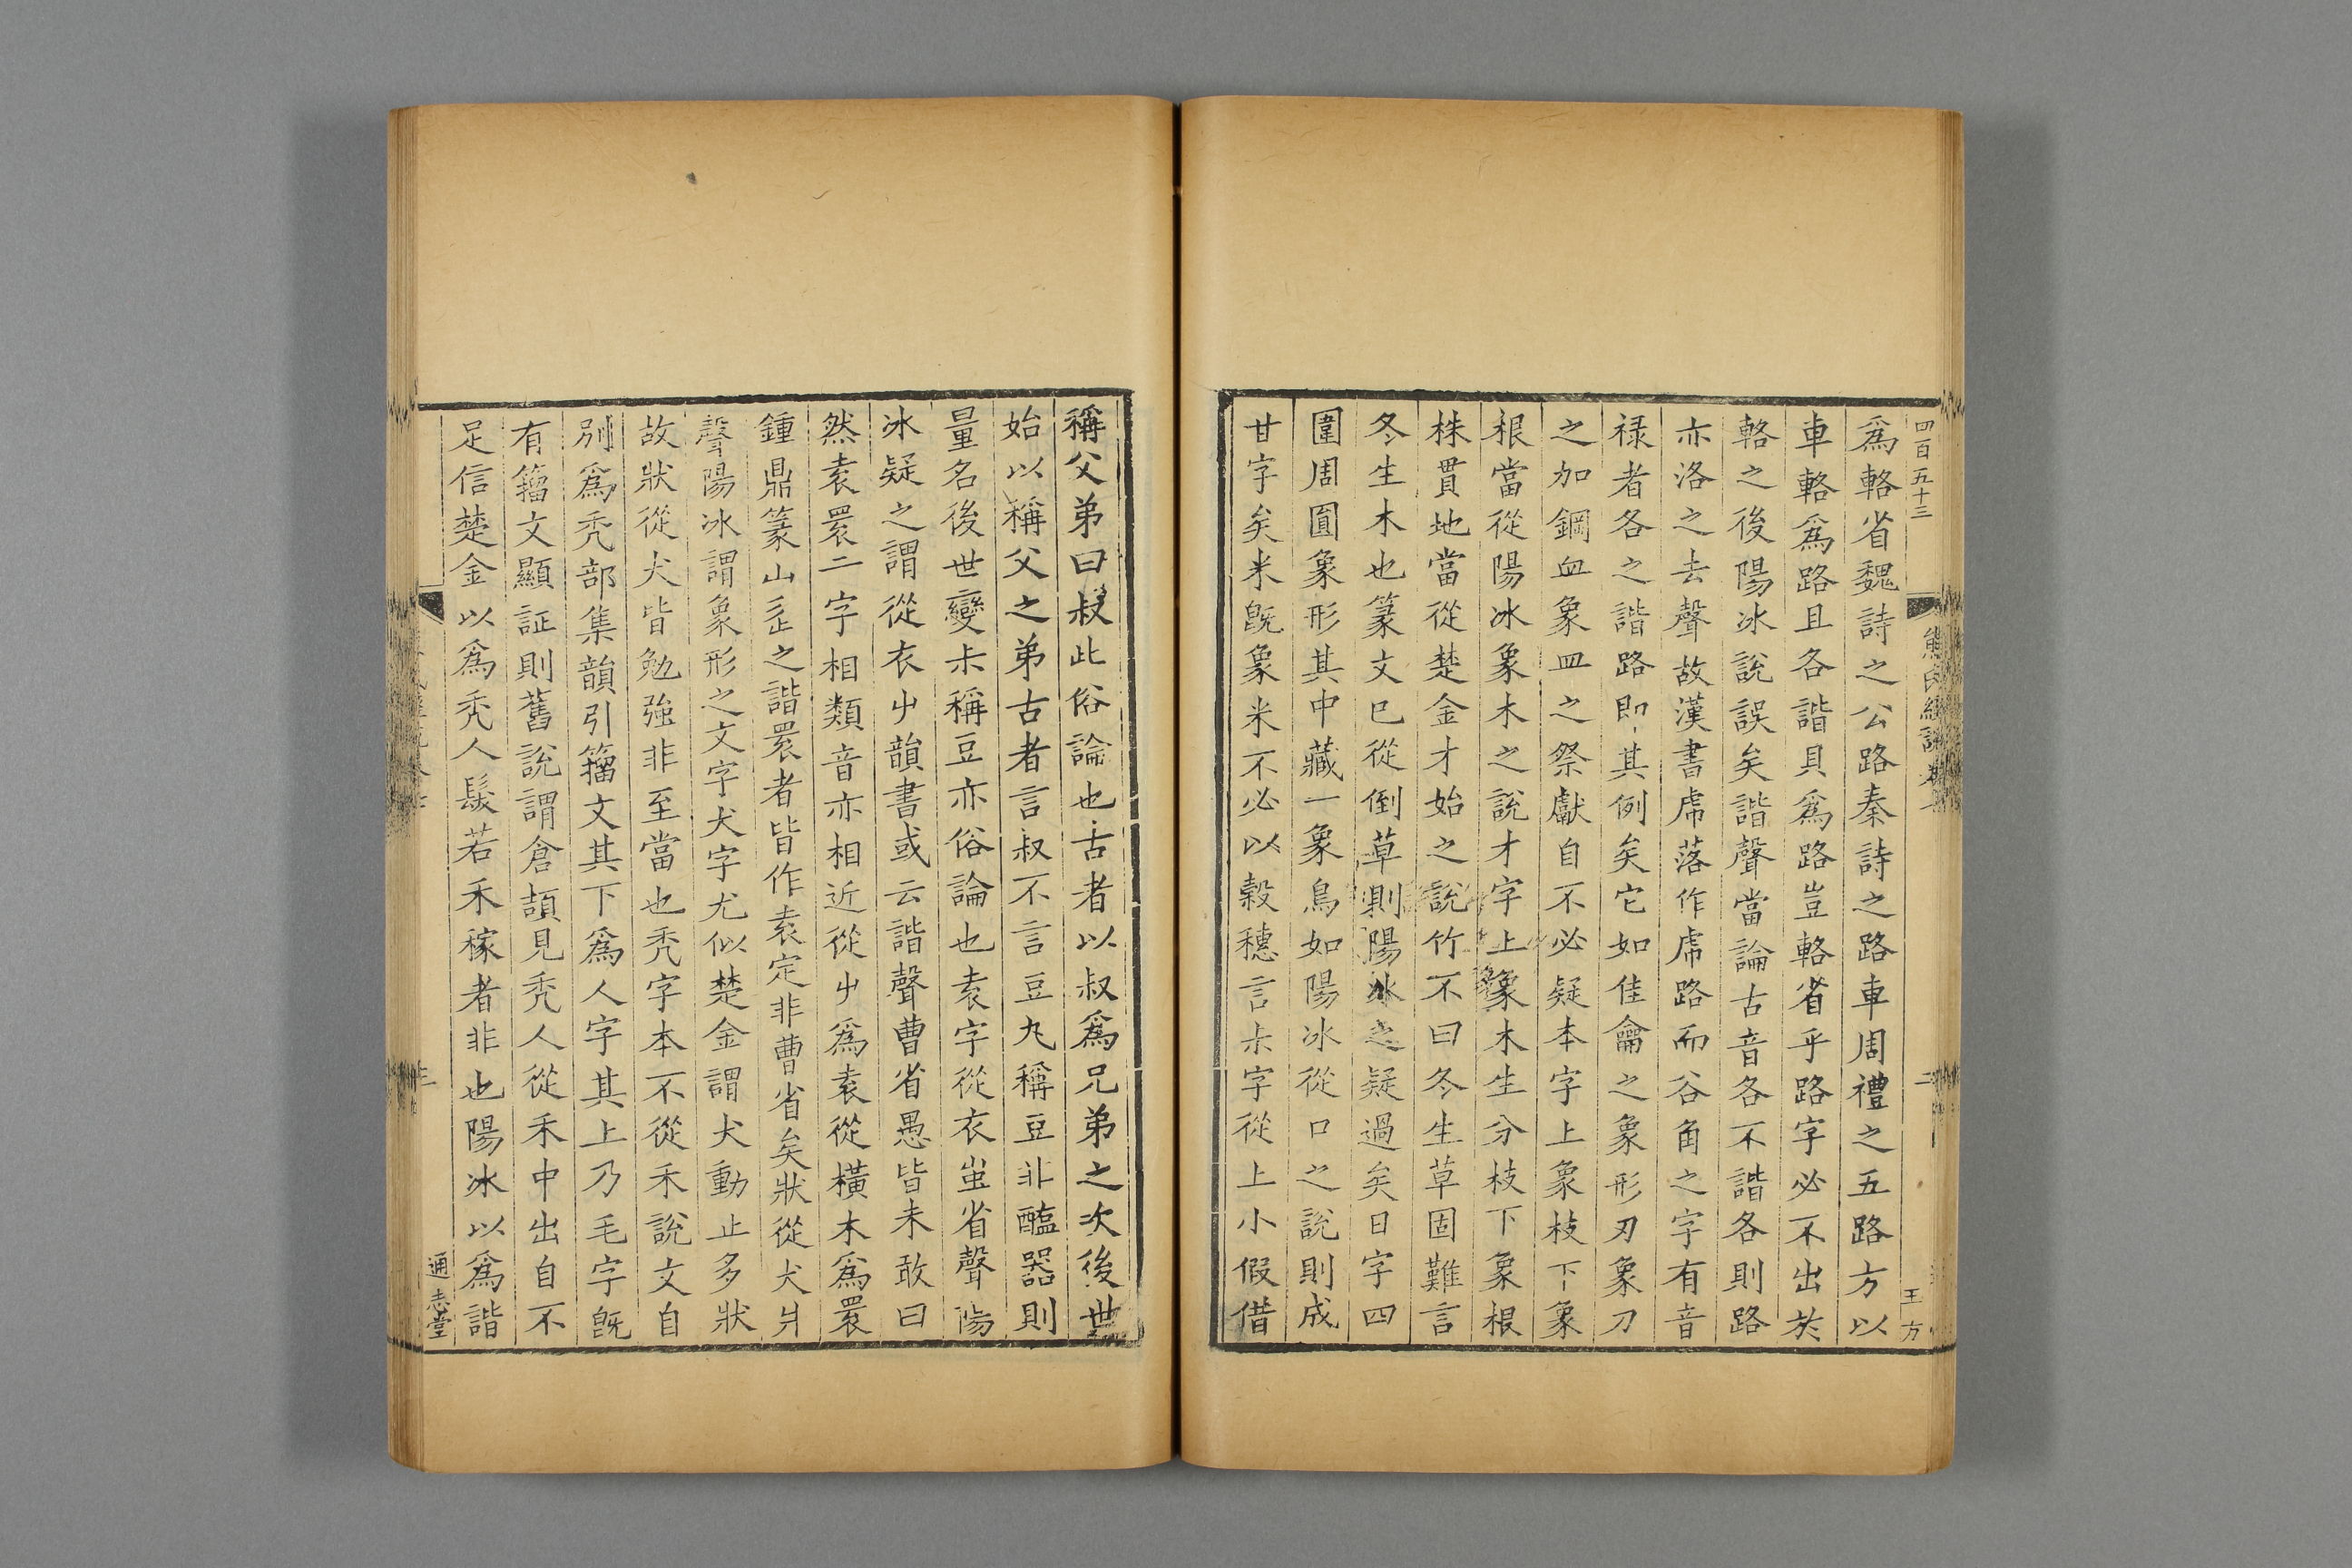 四百五十三
爲輅省魏詩之公路秦詩之路車周禮之五路方以
車輅爲路且各諧貝爲路豈輅省乎路字必不出於
輅之後陽冰說誤矣諧聲當論古音各不諧各則路
亦洛之去聲故漢書虖落作虖路而谷角之字有音
禄者各之諧路即其例矣它如佳龠之象形刃象刀
之加鋼血象皿之祭獻自不必疑本字上象枝下象
根當從陽冰象木之說才字上象木生分枝下象根
株貫地當從楚金才始之說竹不曰冬生草固難言
冬生木也篆文已從倒草則陽冰之疑過矣日字四
圍周圓象形其中藏一象鳥如陽冰從口之說則成
甘字矣米旣象米不必以穀穗言尗字從上小假借
王方
稱父弟曰叔此俗論也古者以叔爲兄弟之次後世
始以稱父之弟古者言叔不言豆九稱豆非醢器則
量名後世變尗稱豆亦俗論也袁字從衣䖝省聲陽
冰疑之謂從衣屮韻書或云諧聲曹省愚皆未敢曰
然袁睘二字相類音亦相近從屮爲袁從橫木爲睘
鍾鼎篆山之諧睘者皆作袁定非曹省矣狀從犬爿
聲陽冰謂象形之文字犬字尤似楚金謂犬動止多狀
故狀從犬皆勉強非至當也禿字本不從禾說文自
別爲禿部集韻引籀文其下爲人字其上乃毛字旣
有籀文顯証則舊說謂倉頡見禿人從禾中出自不
足信楚金以爲禿人髮若禾稼者非也陽冰以爲諧
通志堂